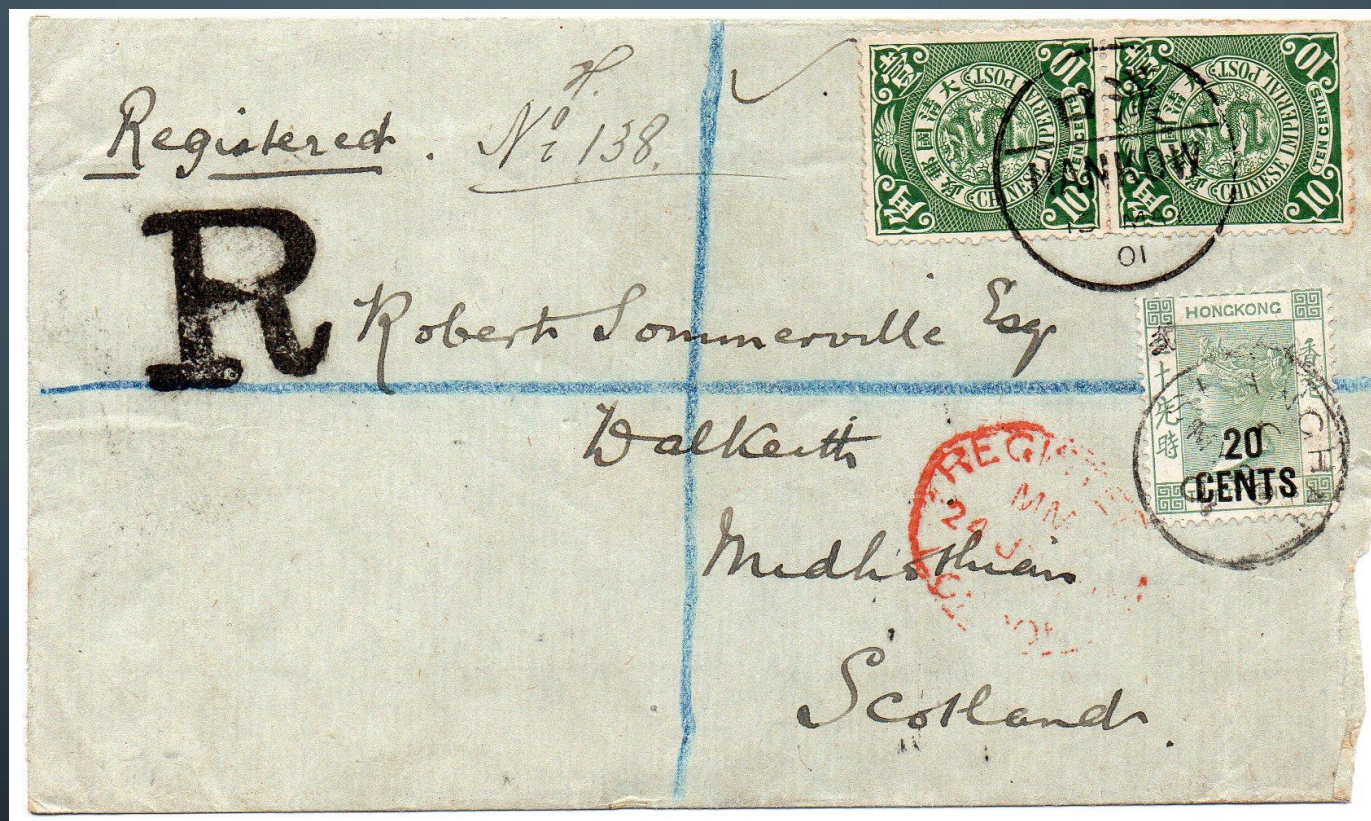 Registered. No 138.
R
Robert Sommerville Esq
Dalkeith
Midlothian
Scotland.
壹 10
大清國郵政
CHINESE IMPERIAL POST
角 10
TEN CENTS
壹 10
CHINESE IMPERIAL POST
角 10
TEN CENTS
漢口
HANKOW
MAY
01
HONGKONG
香港
貳十先時
20
CENTS
REGISTERED
24 JU